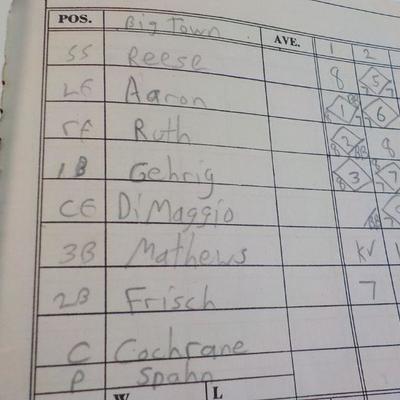 POS. Big Town AVE. 1 2
SS Reese 8 5
LF Aaron 1 6
RF Ruth 2 8
1B Gehrig 3 7
CF DiMaggio
3B Mathews K
2B Frisch 7
C Cochrane
P Spahn
W L